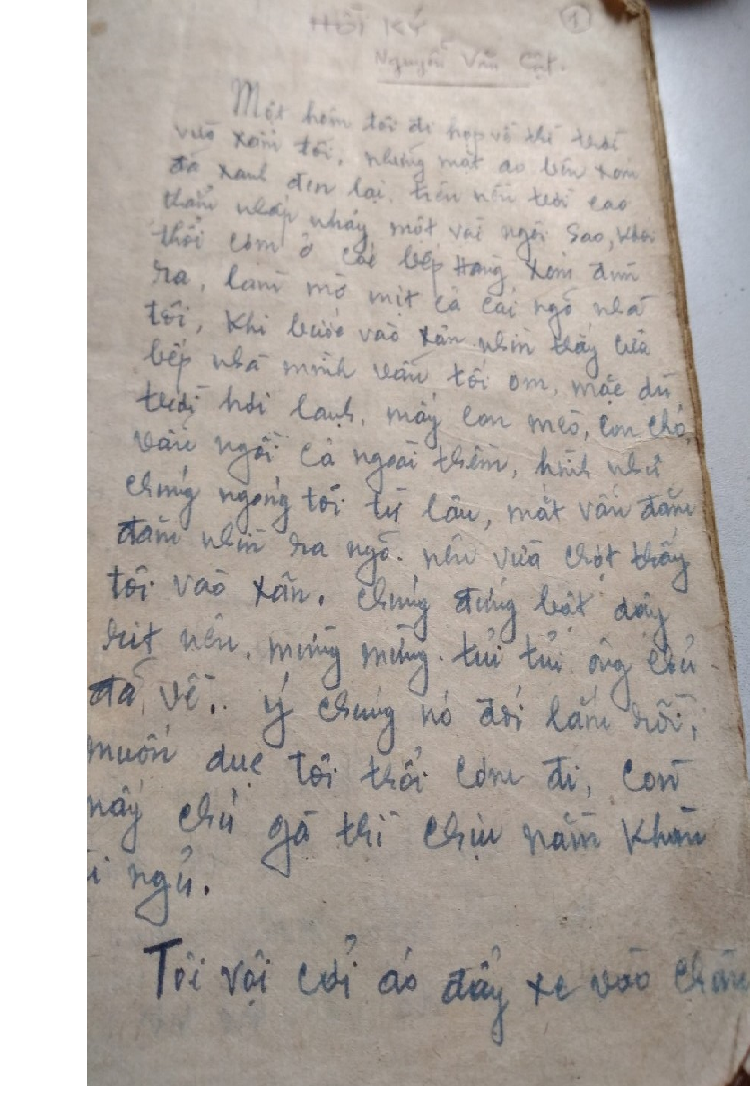 HỒI KÝ
1
Nguyễn Văn Cật.
Một hôm tôi đi họp về thì trời
vừa xẩm tối, những mặt ao bên xóm
đã xanh đen lại, trên nền trời cao
thẳm nhấp nháy một vài ngôi Sao, khói
thổi cơm ở các bếp Hàng xóm đùn
ra, làm mờ mịt cả cái ngõ nhà
tôi, Khi bước vào sân nhìn thấy cửa
bếp nhà mình vẫn tối om, mặc dù
trời hơi lạnh, mấy con mèo, con chó,
vẫn ngồi cả ngoài thềm, hình như
chúng ngóng tôi từ lâu, mắt vẫn đăm
đăm nhìn ra ngõ. nên vừa chợt thấy
tôi vào xân. chúng đứng bật dậy
rít nên, mừng mừng tủi tủi ông chủ
đã về.. ý chúng nó đói lắm rồi,
muốn dục tôi thổi cơm đi, còn
mấy chú gà thì chịu nằm khàn
i ngủ.
Tôi vội cởi áo đẩy xe vào